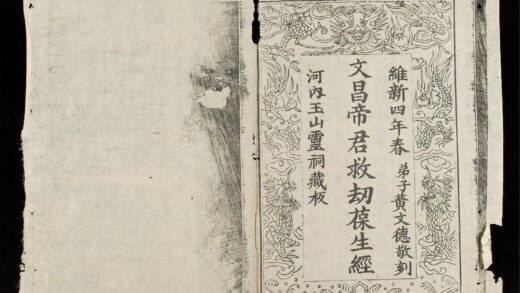 維新四年春 弟子黃文德敬刻
文昌帝君救劫葆生經
河內玉山靈祠藏板